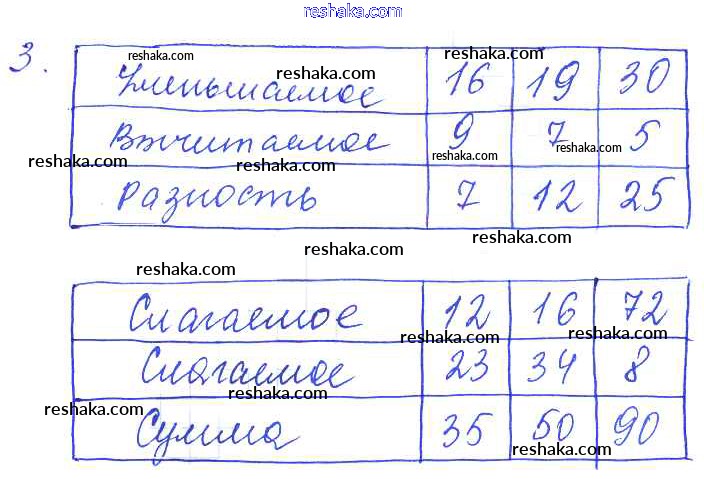 reshaka.com
reshaka.com
3. Уменьшаемое 16 19 30
reshaka.com
Вычитаемое 9 7 5
reshaka.com reshaka.com
reshaka.com reshaka.com
Разность 7 12 25
reshaka.com
reshaka.com
reshaka.com
Слагаемое 12 16 72
reshaka.com reshaka.com
Слагаемое 23 34 8
reshaka.com
reshaka.com
Сумма 35 50 90
reshaka.com